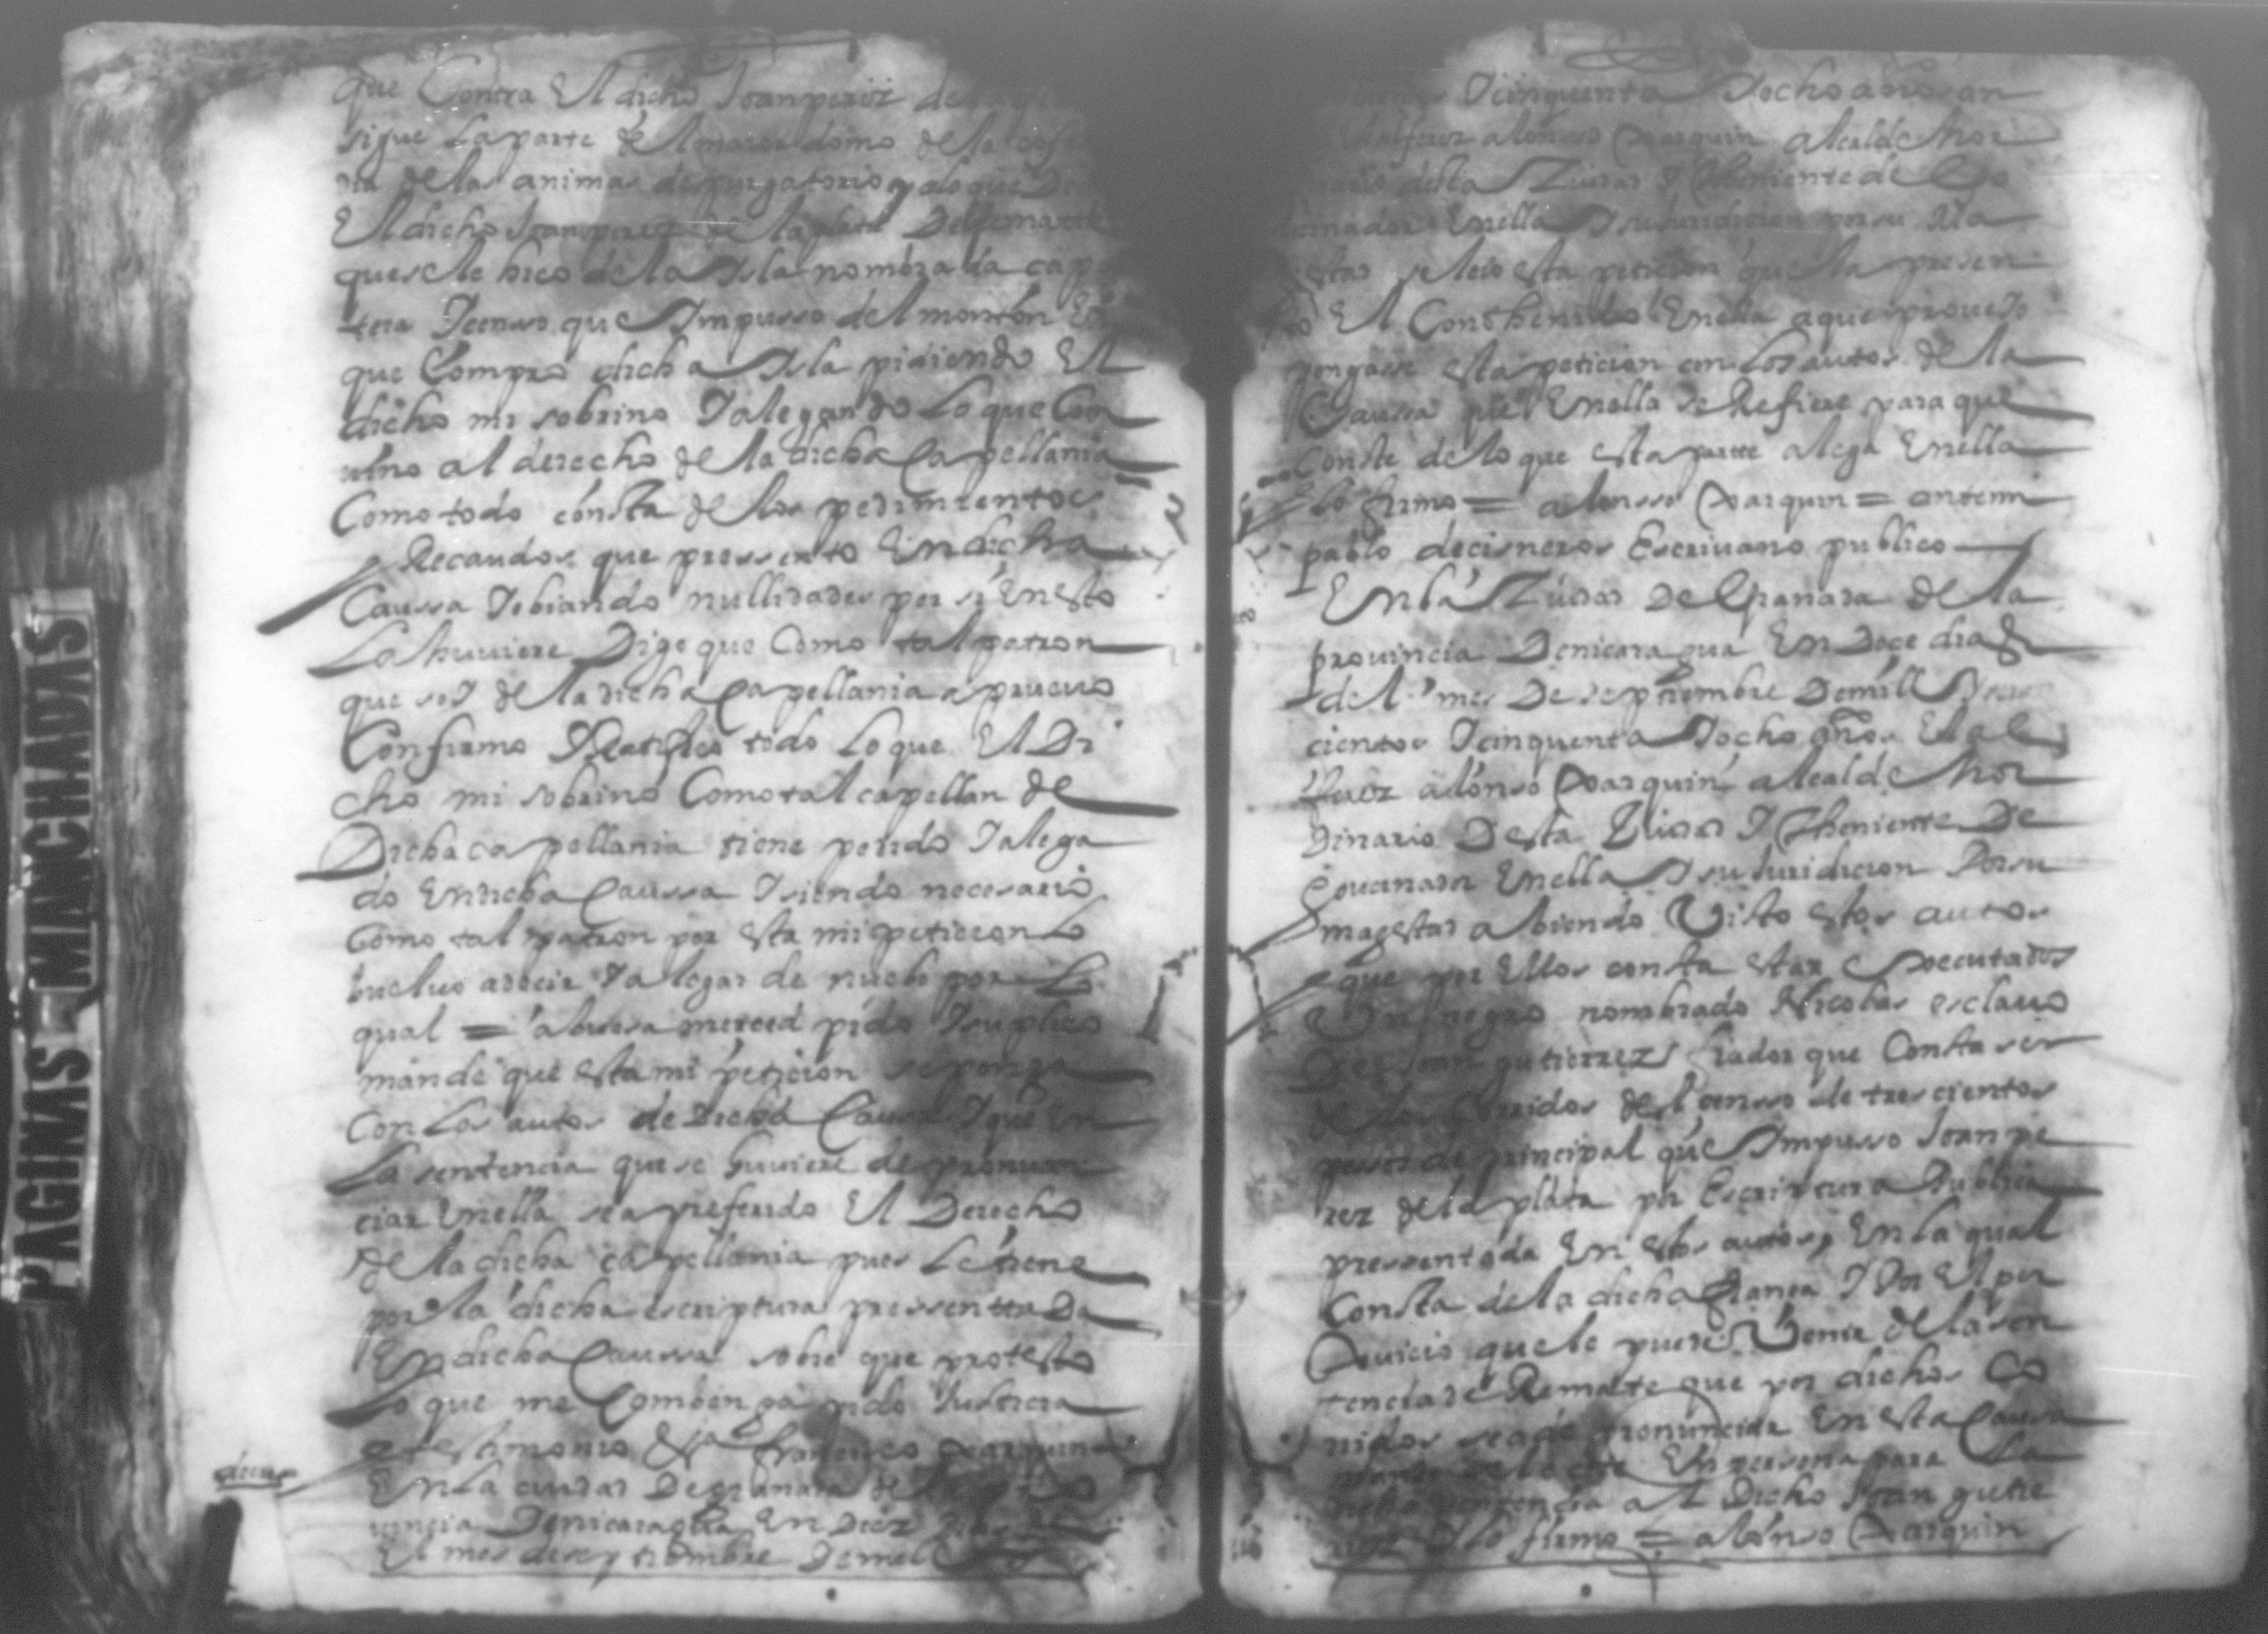 que Contra El dicho Joan perez de
sigue la parte del mayordomo de la cofra
dia de las animas de purgatorio y a lo que
El dicho Joan perez de la plata Del remate
que se le hico de la Isla nombrada ca
tera Y censo que Impusso del monton En
que Compro dicha Isla pidiendo El
dicho mi sobrino Y alegando Lo que Con
uino al derecho de la dicha Capellania
Como todo consta de los pedimientos
y Recaudos que pressento En dicha
Caussa Y obiando nullidades por si En esto
La huuiere Digo que Como tal patron
que soy de la dicha Capellania aprueuo
Confirmo Y Ratifico todo Lo que El Di
cho mi sobrino Como tal capellan de
Dicha capellania tiene pedido Y alega
do En dicha Caussa Y siendo necesario
Como tal patron por esta mi peticion Lo
buelvo a decir Y alegar de nuebo por Lo
qual = a buesa merced pido Y suplico
mande que esta mi peticion se ponga
Con Los autos de Dicha Caussa Y que En
La sentencia que se huuiere de pronun
ciar En ella sea preferido El Derecho
de la dicha capellania pues Le tiene
por la dicha escriptura pressentada
En dicha Caussa sobre que protesto
Lo que me Combenga pido Justicia
e testimonio &ja francisco xarquin
En La ciudad De granada de la pro
uincia De nicaragua En Diez dias de
El mes de septiembre De mill
Y cinquenta Y ocho años an
alferez alonsso xarquin alcalde hor
dinario desta Ziudad Y Theniente de Go
uernador En ella Y su Juridicion por su Ma
gestad se leio esta peticion que la presen
to El Conthenido En ella a que proueyo
pongase esta peticion con Los autos de la
Caussa que En ella se Refiere para que
Conste de lo que esta partte alega En ella
Y Lo firmo = alonsso xarquin = ante mi
pablo de cisneros Escriuano publico
En la Ziudad De Granada de la
prouincia De nicaragua En Doce dias
del mes De septiembre De mill Y seis
cientos Y cinquenta Y ocho años El al
ferez alonso xarquin alcalde hor
dinario Desta Ziudad Y Theniente De
Gouernador En ella Y su Juridicion Por su
magestad abiendo Visto estos autos
y que por Ellos consta estar Executados
Un negro nombrado Nicolas esclauo
De Joan gutierrez fiador que Consta ser
de los Corridos del censso de trescientos
pessos de principal que Impusso Joan pe
rez de la plata por Escriptura Publica
pressentada En estos autos, En la qual
Consta de la dicha fianza Y Por El per
Juicio que le puede Venir de la sen
tencia de Remate que por dichos Co
rridos se a de pronunciar En esta Caussa
mando se le cite En persona para La
dicha sentencia al Dicho Joan gutie
rrez Y Lo firmo = alonso xarquin
PAGINAS MANCHADAS